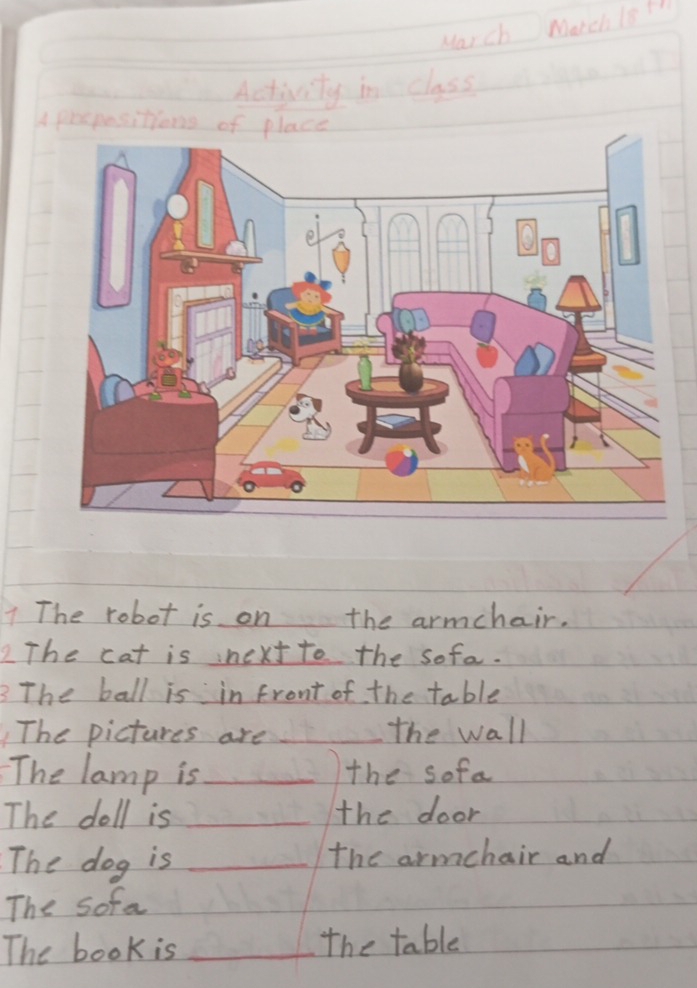 March March 18th
Activity in class
prepositions of place
1 The robot is on the armchair.
2 The cat is next to the sofa.
3 The ball is in front of the table
4 The pictures are ______ the wall
The lamp is ______ the sofa
The doll is ______ the door
The dog is ______ the armchair and
The sofa
The book is ______ the table